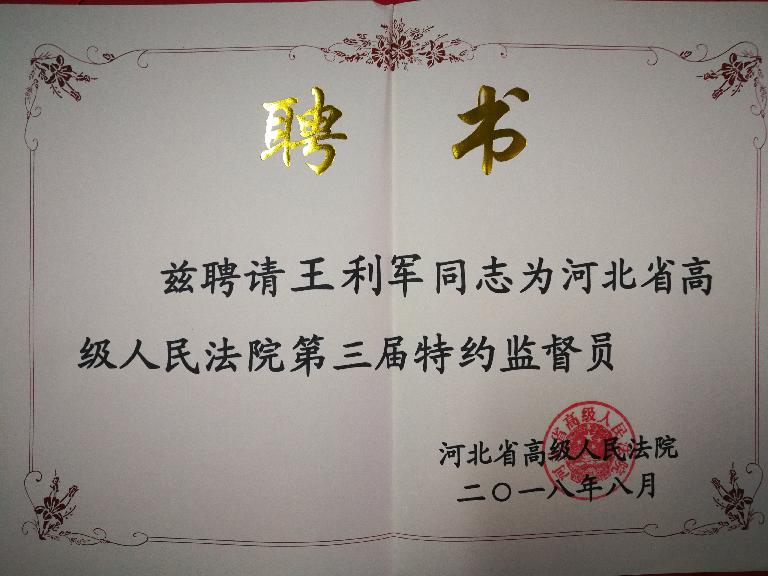 聘书
兹聘请王利军同志为河北省高
级人民法院第三届特约监督员
河北省高级人民法院
二〇一八年八月
河北省高级人民法院